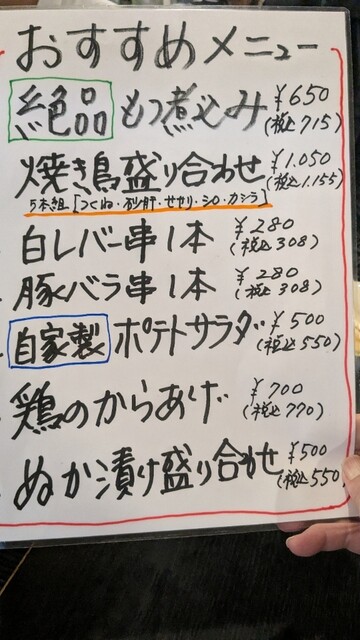 おすすめメニュー
絶品 もつ煮込み ¥650
(税込715)
焼き鳥盛り合わせ ¥1.050
(税込1.155)
5本組[つくね・砂肝・せせり・シロ・カシラ]
白レバー串1本 ¥280
(税込308)
豚バラ串1本 ¥280
(税込308)
自家製 ポテトサラダ ¥500
(税込550)
鶏のからあげ ¥700
(税込770)
ぬか漬け盛り合わせ ¥500
(税込550)